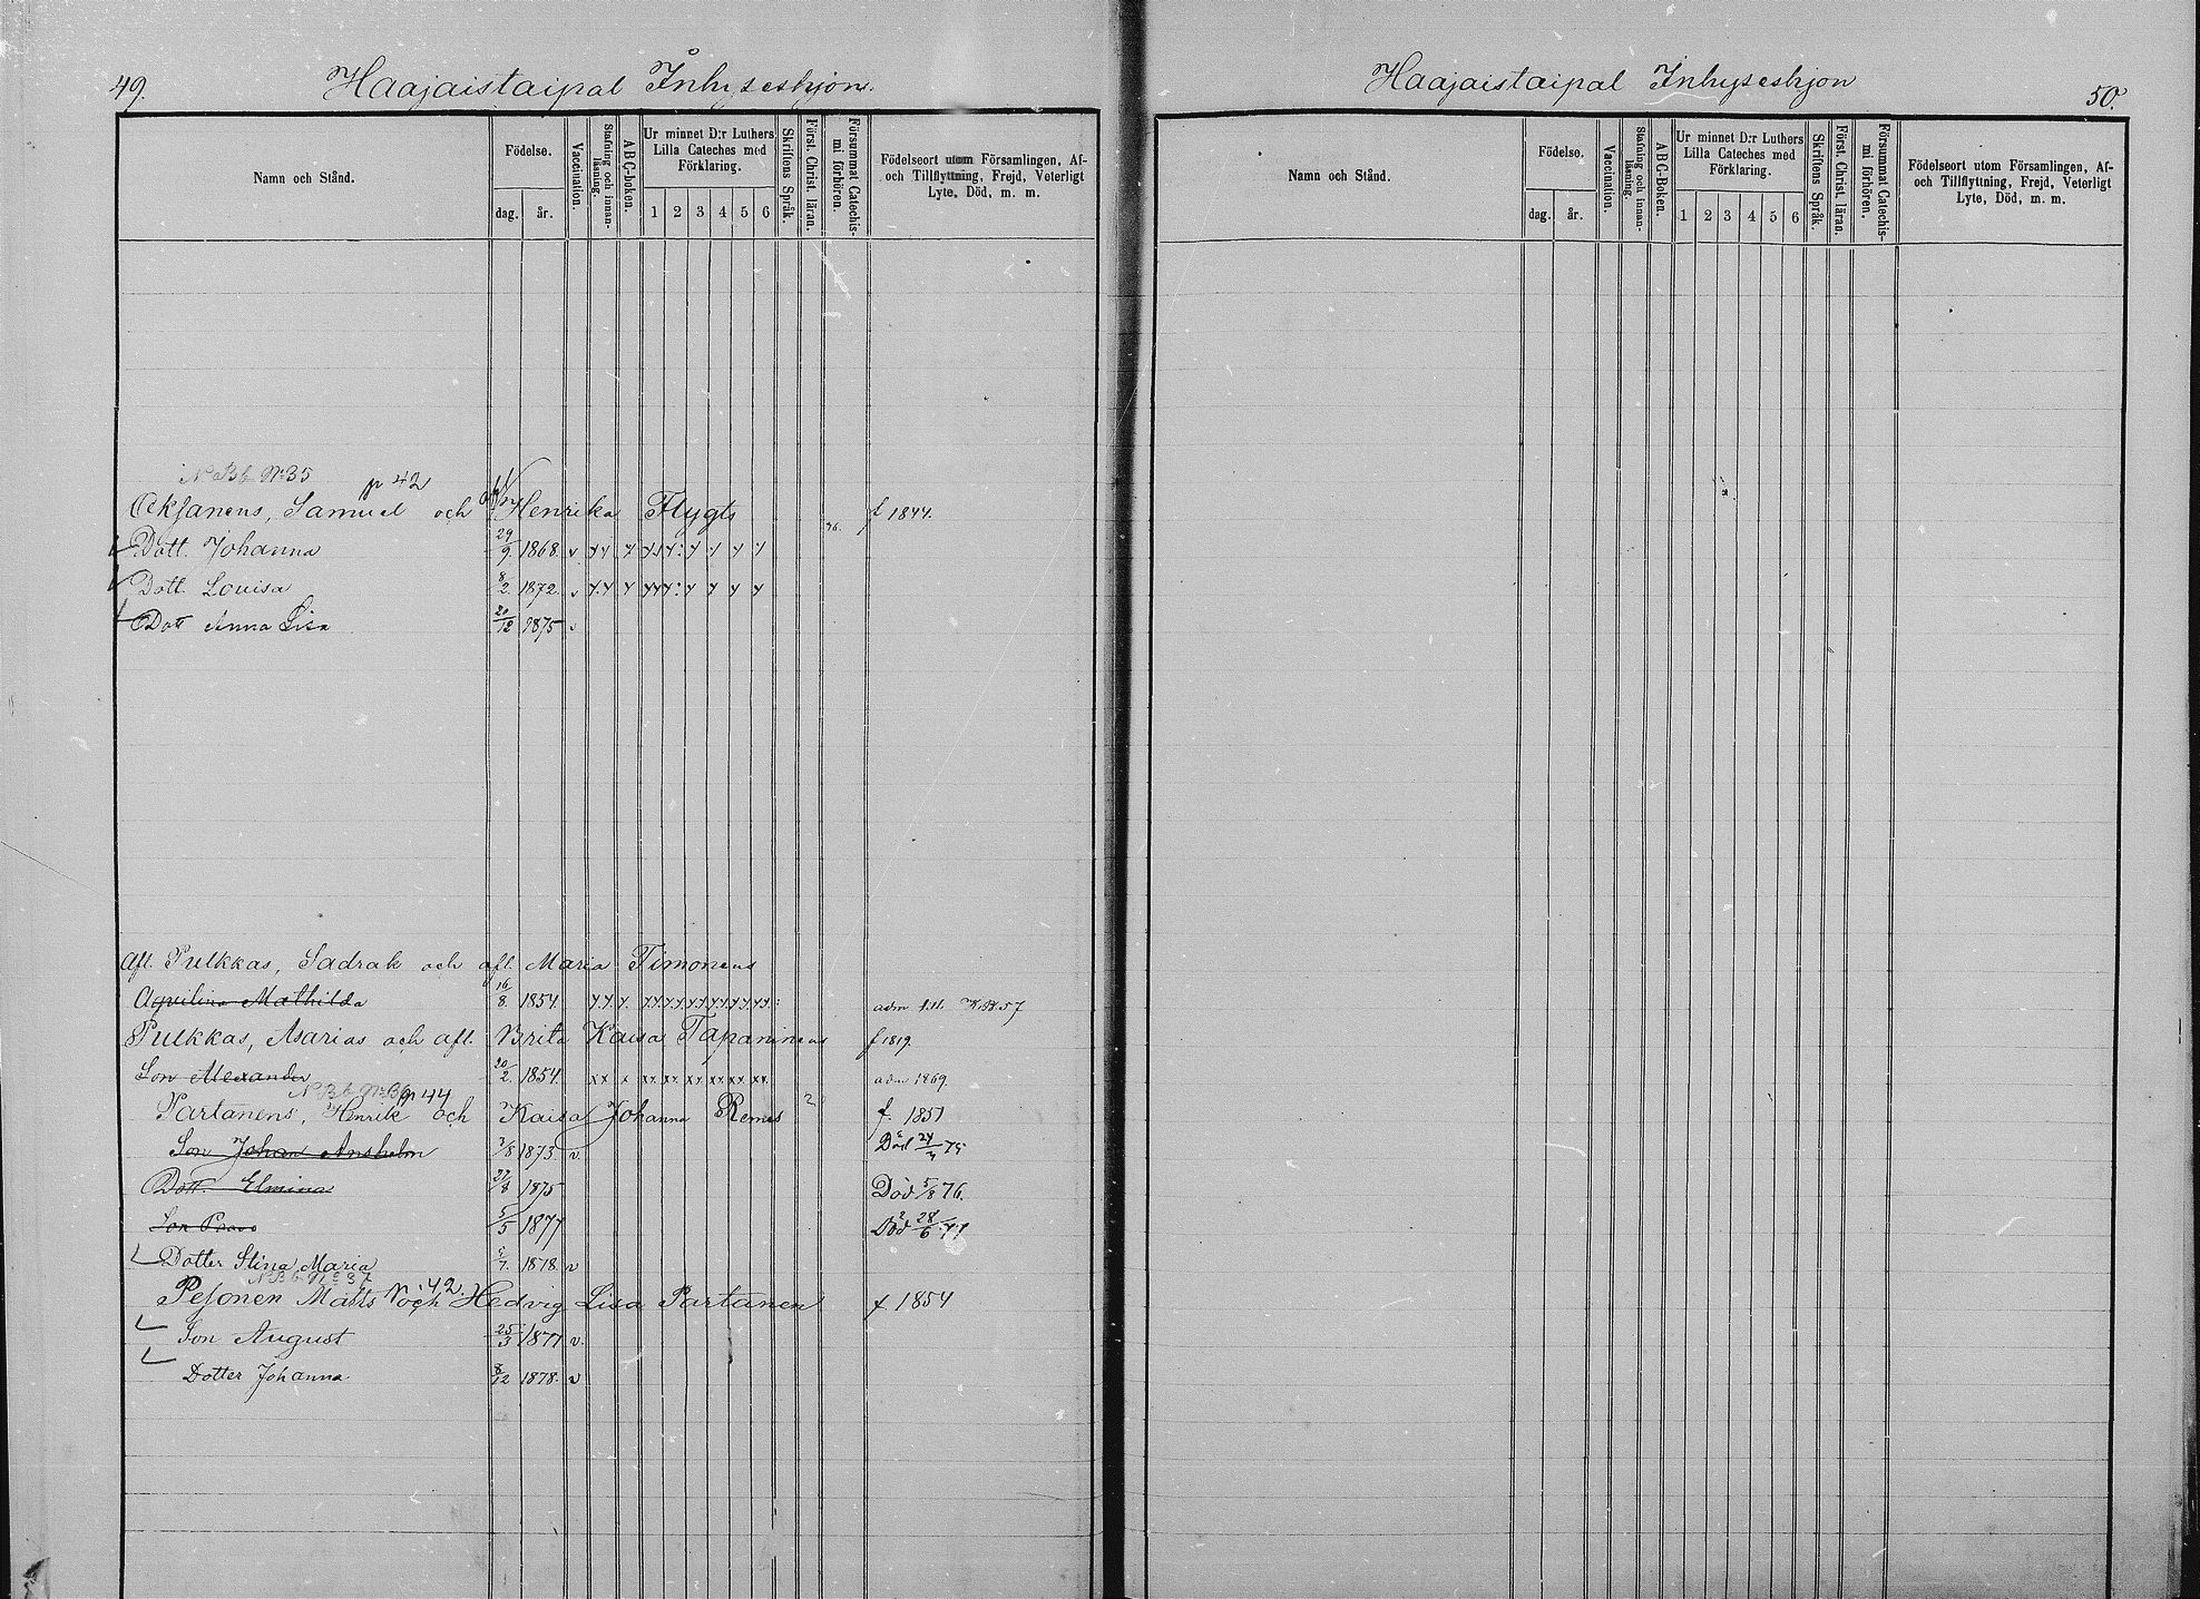 49. Haajaistaipal Inhyseshjon.
Namn och Stånd.
Födelse.
dag. år.
Vaccination.
Stafning och innanläsning.
ABC-boken.
Ur minnet D:r Luthers Lilla Cateches med Förklaring.
1 2 3 4 5 6
Skriftens Språk.
Först. Christ. läran.
Försummat Catechismi förhören.
Födelseort utom Församlingen, Af- och Tillflyttning, Frejd, Veterligt Lyte, Död, m. m.
NBb No 35 p 42
Oksanens, Samuel och afl. Henrika Flygts f 1844.
Dott. Johanna 29/9. 1868. v
Dott. Lovisa 8/2. 1872. v
Dott Anna Lisa 20/12 1875 v
Afl. Pulkkas, Sadrak och afl. Maria Timonens
Aqvilina Mathilda 16/8. 1854.
Pulkkas, Asarias och afl. Brita Kaisa Tapaninens f 1819.
Son Alexander 20/2. 1854. adm 1869.
NBb No 36 p 44
Partanens, Henrik och Kaisa Johanna Remes f. 1851
Son Johan Anshelm 3/8 1873. v. Död 24/4 75
Dott. Elmina 27/8 1875 Död 5/8 76.
Son Paavo 5/5 1877 Död 28/6 77
Dotter Stina Maria 1878. v
NBb No 37
Pesonen Matts och Hedvig Lisa Partanen f 1854
Son August 25/3 1877 v.
Dotter Johanna 8/12 1878. v
Haajaistaipal Inhyseshjon 50.
Namn och Stånd.
Födelse.
dag. år.
Vaccination.
Stafning och innanläsning.
ABC-Boken.
Ur minnet D:r Luthers Lilla Cateches med Förklaring.
1 2 3 4 5 6
Skriftens Språk.
Först. Christ. läran.
Försummat Catechismi förhören.
Födelseort utom Församlingen, Af- och Tillflyttning, Frejd, Veterligt Lyte, Död, m. m.